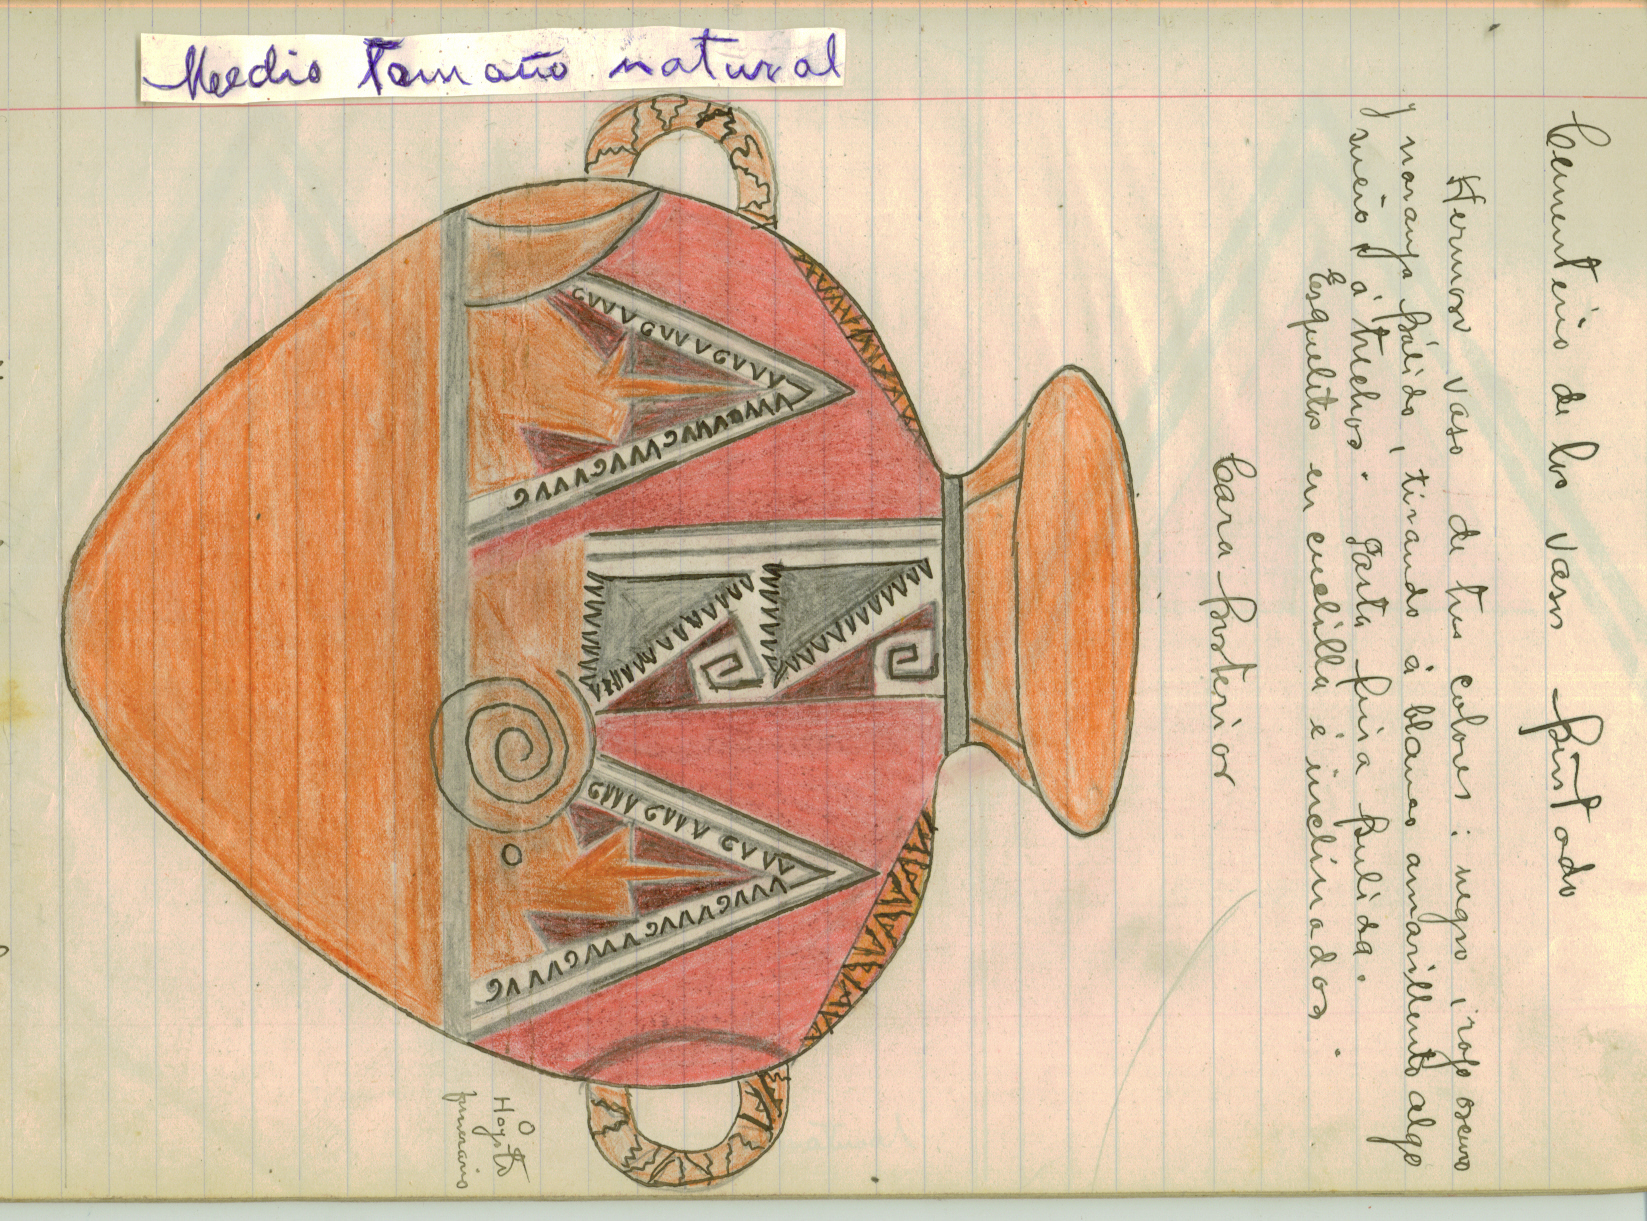 Medio tamaño natural
Cementerio de los vasos pintado
Hermoso vaso de tres colores: negro i rojo oscuro
y naranja pálido, tirando á blanco amarillento algo
sucio á trechos. Pasta fina pulida.
Esqueletos en cuclilla é inclinados.
Cara posterior
O
Hoyito
funerario